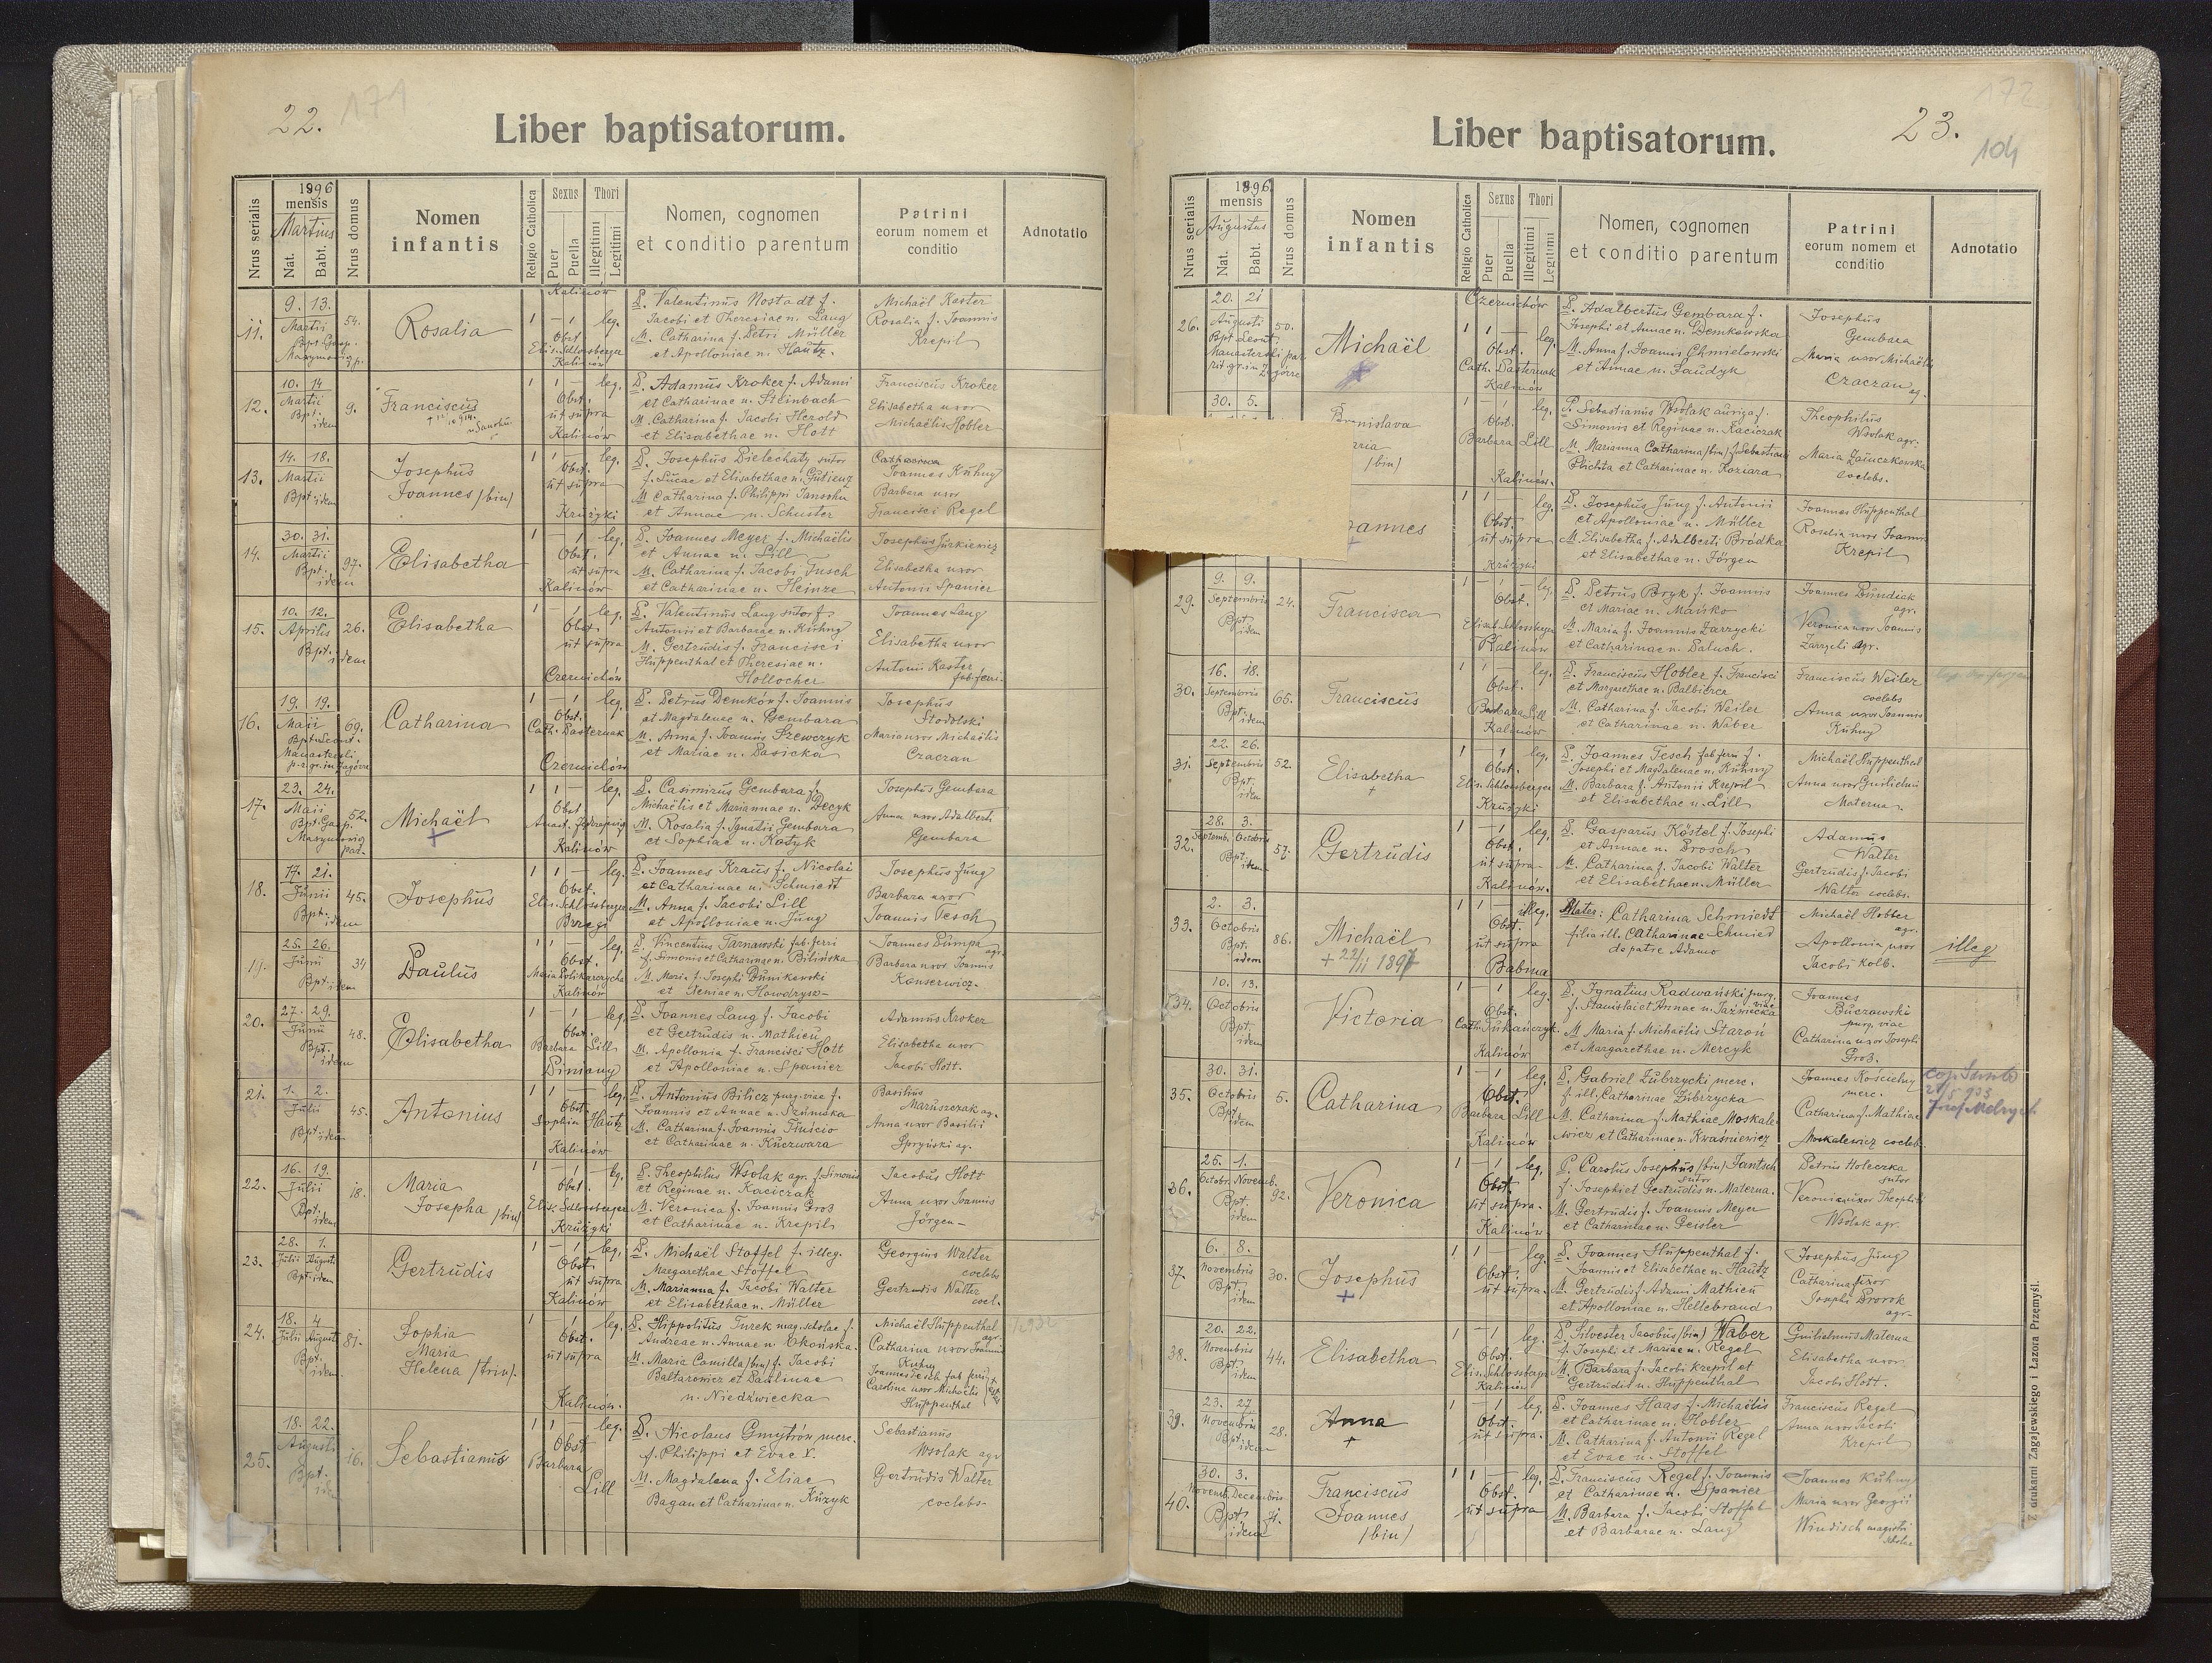 22. 171
Liber baptisatorum.
Nrus serialis
1896
mensis
Martius
Nat.
Babt.
Nrus domus
Nomen
infantis
Religio Catholica
Sexus
Puer
Puella
Thori
Illegitimi
Legitimi
Nomen, cognomen
et conditio parentum
Patrini
eorum nomem et
conditio
Adnotatio
11.
9. 13.
Martii
54.
Rosalia
Kalinów
1 – 1 leg.
Obst
Elis. Schlossberger
Kalinów
P. Valentinus Nostadt f.
Jacobi et Theresiae n. Lang
M. Catharina f. Petri Müller
et Apolloniae n. Hautz.
Michaël Kaster
Rosalia f. Joannis
Krepil
12.
10. 14
Martii
Bpt.
idem
9.
Franciscus
1 1 – leg.
Obst.
ut supra
Kalinów
P. Adamus Kroker f. Adami
et Catharinae n. Steinbach
M. Catharina f. Jacobi Herold
et Elisabethae n. Hott
Franciscus Kroker
Elisabetha uxor
Michaëlis Hobler
13.
14. 18.
Martii
Bpt. idem
Josephus
Joannes /bin/
1 1 leg.
Obst.
ut supra
Krużyki
P. Josephus Bielechaty sutor
f. Lucae et Elisabethae n. Gutienz
M. Catharina f. Philippi Janschu
et Annae n. Schuster
Joannes Kühny
Barbara uxor
Francisci Regel
14.
30. 31.
Martii
Bpt.
idem
97.
Elisabetha
1 – 1 leg.
Obst.
ut supra
Kalinów
P. Joannes Meyer f. Michaëlis
et Annae n. Lill
M. Catharina f. Jacobi Tusch
et Catharinae n. Heinze
Josephus Jurkiewicz
Elisabetha uxor
Antonii Spanier
15.
10. 12.
Aprilis
Bpt.
idem
26.
Elisabetha
1 – 1 leg.
Obst.
ut supra
Czernichów
P. Valentinus Lang sutor f.
Antonii et Barbarae n. Kühny
M. Gertrudis f. Francisci
Huppenthal et Theresiae n.
Hollocher
Joannes Lang
Elisabetha uxor
Antonii Kaster
fab. ferri.
16.
19. 19.
Maii
69.
Catharina
1 – 1 leg.
Obst.
Cath. Pasternak
Czernichów
P. Petrus Demków f. Joannis
et Magdalenae n. Gembara
M. Anna f. Joannis Szewczyk
et Mariae n. Pasicka
Josephus
Stodolski
Maria uxor Michaëlis
Czaczan
17.
23. 24.
Maii
52.
Michaël
1 1 – leg.
Obst
Kalinów
P. Casimirus Gembara f.
Michaëlis et Mariannae n. Decyk
M. Rosalia f. Ignatii Gembara
et Sophiae n. Kotyk
Josephus Gembara
Anna uxor Adalberti
Gembara
18.
17. 21.
Junii
Bpt.
idem
45.
Josephus
1 1 – leg.
Obst.
Elis. Schlossberger
Brzegi
P. Joannes Kraus f. Nicolai
et Catharinae n. Schmiedt
M. Anna f. Jacobi Lill
et Apolloniae n. Jung
Josephus Jung
Barbara uxor
Joannis Tesch
19.
25. 26.
Junii
Bpt. idem
34
Paulus
1 1 – leg.
Obst.
Kalinów
P. Vincentius Tarnawski fab. ferri
f. Simonis et Catharinae n. Bilińska
M. Maria f. Josephi Dunikowski
Joannes Dumpa
agr.
Barbara uxor Joannis
Konserwicz.
20.
27. 29.
Junii
Bpt.
idem
48.
Elisabetha
1 – 1 leg.
Obst.
Barbara Lill
Biniany
P. Joannes Lang f. Jacobi
et Gertrudis n. Mathieu
M. Apollonia f. Francisci Hott
et Apolloniae n. Spanier
Adamus Kroker
Elisabetha uxor
Jacobi Hott.
21.
1. 2.
Julii
Bpt. idem
45.
Antonius
1 1 – leg.
Obst.
Sophia Hautz
Kalinów
P. Antonius Bilicz purg. viae f.
Joannis et Annae n. Szumska
M. Catharina f. Joannis Tluścio
et Catharinae n. Kuczwara
Basilius
Maruszczak ag.
Anna uxor Basilii
Spryński ag.
22.
16. 19.
Julii
Bpt.
idem
18.
Maria
Josepha /bin/
1 – 1 leg.
Obst.
Elis. Schlossberger
Krużyki
P. Theophilus Wsolak agr. f. Simonis
et Reginae n. Kaciczak
M. Veronica f. Joannis Groß
et Catharinae n. Krepil
Jacobus Hott
Anna uxor Joannis
Jörgen
23.
28. 1.
Julii Augusti
Bpt. idem
Gertrudis
1 – 1 leg.
Obst.
ut supra
Kalinów
P. Michaël Stoffel f. illeg.
Margarethae Stoffel
M. Marianna f. Jacobi Walter
et Elisabethae n. Müller
Georgius Walter
coelebs
Gertrudis Walter
coel.
24.
18. 4
Julii Augusti
Bpt.
idem
81.
Sophia
Maria
Helena /trin/.
1 – 1 leg.
Obst.
ut supra
Kalinów.
P. Hippolitus Turek mag. scholae f.
Andreae n. Annae n. Okońska.
M. Maria Camilla /bin/ f. Jacobi
Baltarowicz et Paulinae
n. Niedźwiecka
Michaël Huppenthal
agr.
Catharina uxor Joannis
Kuhny
Joannes Tesch fab. ferri
Carolina uxor Michaëlis
Huppenthal
25.
18. 22.
Augusti
Bpt.
idem
16.
Sebastianus
1 1 – leg.
Obst
Barbara
Lill
P. Nicolaus Gmytrów merc.
f. Philippi et Evae V.
M. Magdalena f. Eliae
Bagan et Catharinae n. Kuzyk
Sebastianus
Wsolak agr
Gertrudis Walter
coelebs
172
23.
104
Liber baptisatorum.
Nrus serialis
1896.
mensis
Augustus
Nat.
Babt.
Nrus domus
Nomen
infantis
Religio Catholica
Sexus
Puer
Puella
Thori
Illegitimi
Legitimi
Nomen, cognomen
et conditio parentum
Patrini
eorum nomem et
conditio
Adnotatio
26.
20. 21
Augusti
50.
Michaël
Czernichów
1 1 – leg.
Obst.
Cath. Pasternak
Kalinów
P. Adalbertus Gembara f.
Josephi et Annae n. Demkowska
M. Anna f. Joannis Chmielowski
et Annae n. Faudyk
Josephus
Gembara
Maria uxor Michaëlis
Czaczan
ag.
30. 5.
nislava
aria
/bin/
1 – 1 leg.
Obst.
Barbara Lill
Kalinów.
P. Sebastianus Wsolak auriga f.
Simonis et Reginae n. Kaciczak
M. Marianna Catharina /bin/ f. Sebastiani
Plichta et Catharinae n. Koziara
Theophilus
Wsolak agr.
Maria Zaunczkowska
coelebs.
annes
1 1 – leg.
Obst.
ut supra
Krużyki
P. Josephus Jung f. Antonii
et Apolloniae n. Müller
M. Elisabetha f. Adalberti Brodka
et Elisabethae n. Jörgen
Joannes Huppenthal
Rosalia uxor Joannis
Krepil
29.
9. 9.
Septembris
Bpt.
idem
24.
Francisca
1 – 1 leg.
Obst.
Elisab. Schlossberger
Kalinów
P. Petrus Bryk f. Joannis
et Mariae n. Mańko
M. Maria f. Joannis Zarrycki
et Catharinae n. Paluch.
Joannes Dundiak
agr.
Veronica uxor Joannis
Zarrycki agr.
30.
16. 18.
Septembris
Bpt.
idem
65.
Franciscus
1 1 – leg.
Obst.
Barbara Lill
Kalinów
P. Franciscus Hobler f. Francisci
et Margarethae n. Balbierer
M. Catharina f. Jacobi Weiler
et Catharinae n. Waber
Franciscus Weiler
coelebs
Anna uxor Joannis
Kühny
31.
22. 26.
Septembris
Bpt.
idem
52.
Elisabetha
1 – 1 leg.
Obst.
Elis. Schlossberger
Krużyki
P. Joannes Tesch fab. ferri f.
Josephi et Magdalenae n. Kühny
M. Barbara f. Antonii Krepil
et Elisabethae n. Lill
Michaël Huppenthal
Anna uxor Guilielmi
Materna.
32.
28. 3.
Septemb. Octobris
Bpt.
idem
57.
Gertrudis
1 – 1 leg.
Obst.
ut supra
Kalinów.
P. Gasparus Köstel f. Josephi
et Annae n. Brosch
M. Catharina f. Jacobi Walter
et Elisabethae n. Müller
Adamus
Walter
Gertrudis f. Jacobi
Walter coelebs.
33.
2. 3.
Octobris
Bpt.
idem
86.
Michaël
+ 22/11 1897
1 1 – illeg.
Obst.
ut supra
Babina
Mater: Catharina Schmiedt
filia ill. Catharinae Schmied
de patre Adamo
Michaël Hobler
agr.
Apollonia uxor
Jacobi Kolb.
illeg
34.
10. 13.
Octobris
Bpt.
idem
Victoria
1 – 1 leg.
Obst.
Cath. Tukańczyk.
Kalinów
P. Ignatius Radwański purg.
viae
f. Stanislai et Annae n. Jaźnicka
M. Maria f. Michaëlis Staroń
et Margarethae n. Mercyk
Joannes
Buczowski
purg. viae
Catharina uxor Josephi
Groß.
35.
30. 31.
Octobris
Bpt.
idem
5.
Catharina
1 – 1 leg.
Obst.
Barbara Lill
Kalinów
P. Gabriel Zubrzycki merc.
f. ill. Catharinae Zubrzycka
M. Catharina f. Mathiae Moskale
wicz et Catharinae n. Kwaśniewicz
Joannes Kościelny
merc.
Catharina f. Mathiae
Moskalewicz coeleb.
36.
25. 1.
Octobr. Novemb.
Bpt.
idem
92.
Veronica
1 – 1 leg.
Obst.
ut supra.
Kalinów
P. Carolus Josephus /bin/ Jantsch
sutor
f. Josephi et Gertrudis n. Materna.
M. Gertrudis f. Joannis Meyer
et Catharinae n. Geisler
Petrus Holeczka
sutor
Veronica uxor Theophili
Wsolak agr.
37.
6. 8.
Novembris
Bpt.
idem
30.
Josephus
1 1 – leg.
Obst.
ut supra.
P. Joannes Huppenthal f.
Joannis et Elisabethae n. Hautz
M. Gertrudis f. Adami Mathieu
et Apolloniae n. Hellebrand
Josephus Jung
Catharina uxor
Josephi Prorok
agr.
38.
20. 22.
Novembris
Bpt.
idem
44.
Elisabetha
1 – 1 leg.
Obst.
Elis. Schlossberger
Kalinów
P. Silvester Jacobus /bin/ Waber
f. Josephi et Mariae n. Regel
M. Barbara f. Jacobi Krepil et
Gertrudis n. Huppenthal
Guilielmus Materna
Elisabetha uxor
Jacobi Hott.
39.
23. 27
Novembris
Bpt. idem
28.
Anna
1 – 1 leg.
Obst.
ut supra.
P. Joannes Haas f. Michaëlis
et Catharinae n. Hobler
M. Catharina f. Antonii Regel
et Evae n. Stoffel
Franciscus Regel
Anna uxor Jacobi
Krepil
40.
30. 3.
Novemb. Decembris
Bpt.
idem
71.
Franciscus
Joannes
/bin/
1 1 – leg.
Obst.
ut supra
P. Franciscus Regel f. Joannis
et Catharinae n. Spanier
M. Barbara f. Jacobi Stoffel
et Barbarae n. Lang
Joannes Kuhny
Maria uxor Georgii
Windisch magistri
scholae
Z drukarni Zagajewskiego i Łazora Przemyśl.